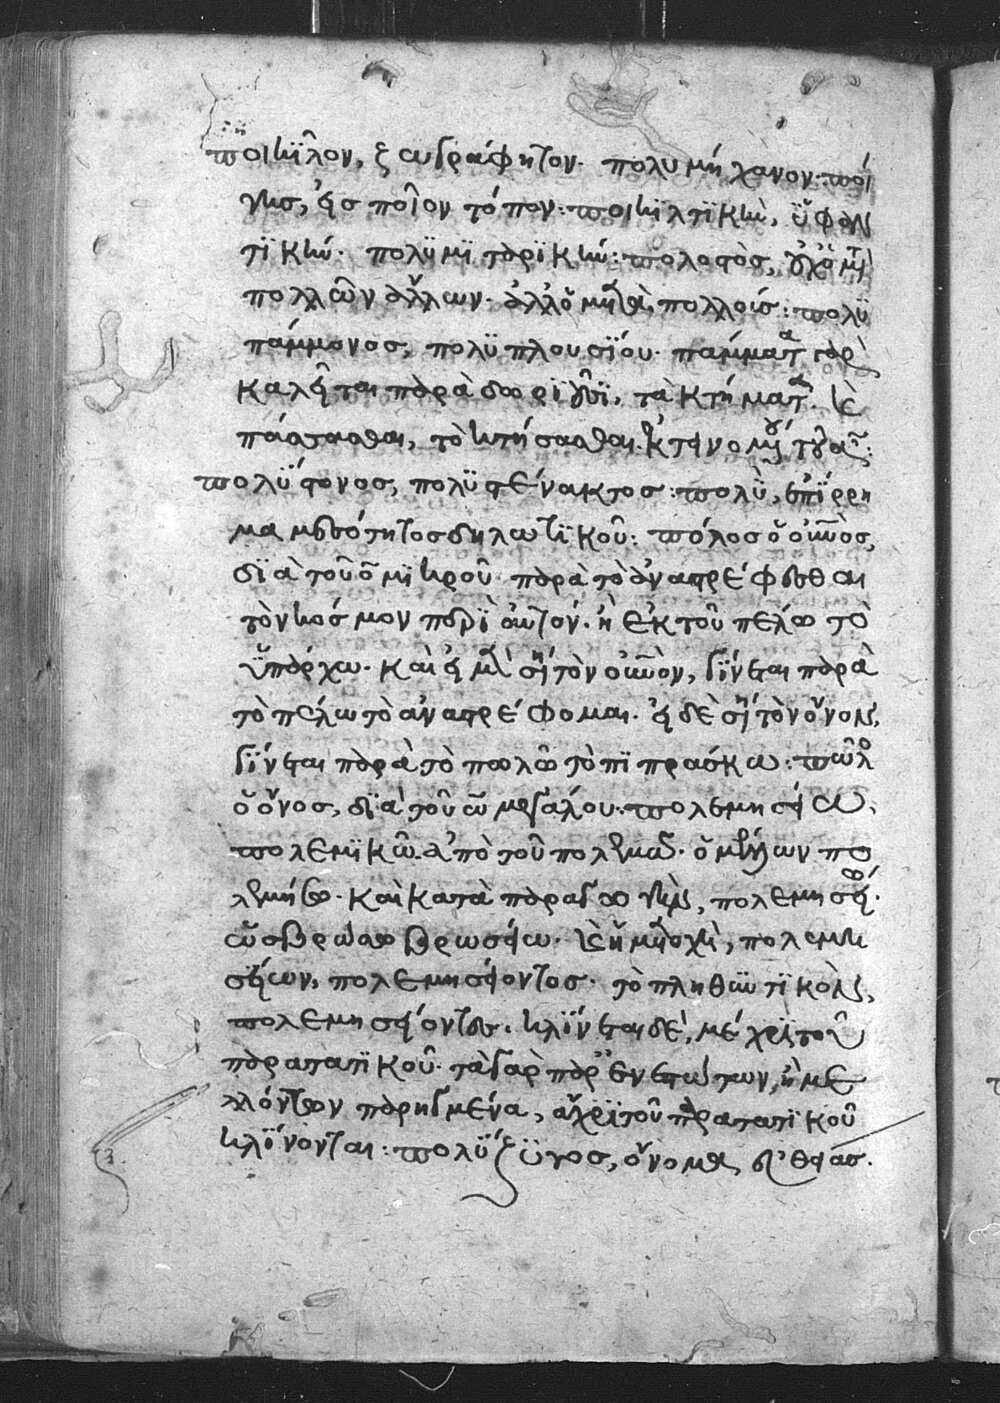 ποικΐλον, ζωγράφητον· πολυμήχανον· ποί
γησ, εἰσ ποῖον τόπον: ποικϊλτϊκὴν, ϋφαν
τϊκήν· πολϋμϊτορϊκήν: πολατὸσ,
πολλῶν ἄλλων· πολλοίσ: πολϋ
πάμμονοσ, πολϋπλουσΐου· πάμματα γὰρ
καλεῖται παρὰ δωριεῦσϊ, τὰ κτήματα· καὶ
πάσασθαι, τὸ κτήσασθαι·
πολΰστονοσ, πολϋστένακτοσ: πολϋ, ἐπΐρρη
μα μεσότητοσ δηλωτϊκοῦ: πόλοσ ὁ οὐρανὸσ,
δϊὰ τοῦ ο μϊκροῦ παρὰ τὸ ἀναστρέφεσθαι
τὸν κόσμον περὶ αὐτόν· ἢ ἐκ τοῦ πέλω τὸ
ϋπάρχω· καὶ εἰ μὲν σημαίνει τὸν οὐρανὸν, γΐνεται παρὰ
τὸ πέλω τὸ ἀναστρέφομαι· εἰ δὲ σημαίνει τὸν ὄνον,
γΐνεται παρὰ τὸ πωλῶ τὸ πϊπράσκω: πῶλοσ
ὁ ὄνοσ, δϊὰ τοῦ ω μεγάλου· πολεμησείω,
πολεμϊκῶ· ἀπὸ τοῦ πολεμῶ· ὁ μέλλων πο
λεμήσω· καὶ κατὰ παραγωγὴν, πολεμησείω·
ὡσ βρώσω βρωσείω· καὶ ἡ μετοχὴ, πολεμη
σείων, πολεμησείοντοσ· τὸ πληθϋντϊκὸν,
πολεμησείοντεσ· κλΐνεται δὲ, μέχρϊ τοῦ
παρατατϊκοῦ· τὰ γὰρ παρ' ἐνεστώτων, ἢ με
λλόντων παρηγμένα, ἄχρϊ τοῦ παρατατϊκοῦ
κλΐνονται: πολΰζϋγοσ, ὄνομα θεᾶσ.